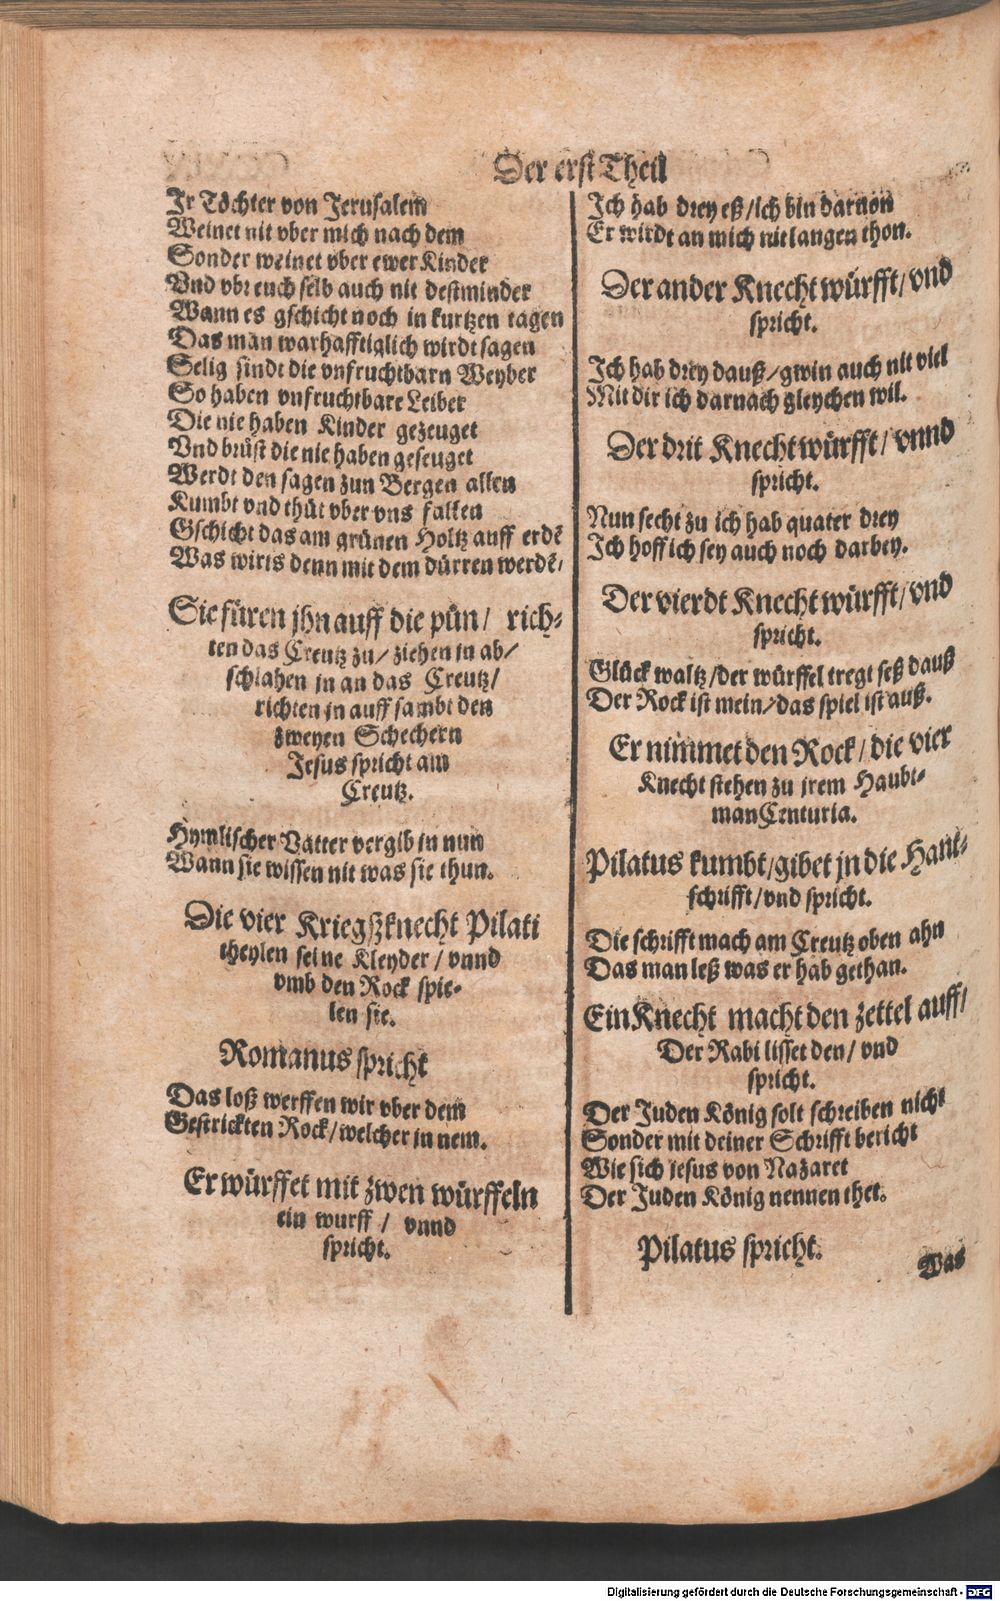 Der erst Theil
Jr Töchter von Jerusalem
Weinet nit vber mich nach dem
Sonder weinet vber ewer Kinder
Vnd vbr euch selb auch nit destminder
Wann es gschicht noch in kurtzen tagen
Das man warhafftiglich wirdt sagen
Selig sindt die vnfruchtbarn Weyber
So haben vnfruchtbare Leiber
Die nie haben Kinder gezeuget
Vnd brüst die nie haben geseuget
Werdt den sagen zun Bergen allen
Kumbt vnd thüt vber vns fallen
Gschicht das am grünen Holtz auff erdē
Was wirts denn mit dem dürren werdē/
Sie füren jhn auff die pün/ rich-
ten das Creutz zu/ ziehen in ab/
schlahen in an das Creutz/
richten in auff sambt den
zweyen Schechern
Jesus spricht am
Creutz.
Hymlischer Vatter vergib in nun
Wann sie wissen nit was sie thun.
Die vier Kriegßknecht Pilati
theylen seine Kleyder/ vnnd
vmb den Rock spie-
len sie.
Romanus spricht
Das loß werffen wir vber dem
Gestrickten Rock/welcher in nem.
Er würffet mit zwen würffeln
ein wurff/ vnnd
spricht.
Ich hab drey eß/ich bin darnon
Er wirdt an mich nit langen thon.
Der ander Knecht würfft/vnd
spricht.
Ich hab drey dauß/gwin auch nit viel
Mit dir ich darnach gleychen wil.
Der drit Knecht würfft/vnnd
spricht.
Nun secht zu ich hab quater drey
Ich hoff ich sey auch noch darbey.
Der vierdt Knecht würfft/vnd
spricht.
Glück waltz/der würffel tregt seß dauß
Der Rock ist mein/das spiel ist auß.
Er nimmet den Rock/die vier
Knecht stehen zu irem Haubt-
man Centuria.
Pilatus kumbt/gibet jn die Hant-
schrifft/vnd spricht.
Die schrifft mach am Creutz oben ahn
Das man leß was er hab gethan.
Ein Knecht macht den zettel auff/
Der Rabi lisset den/ vnd
spricht.
Der Juden König solt schreiben nicht
Sonder mit deiner Schrifft bericht
Wie sich jesus von Nazaret
Der Juden König nennen thet.
Pilatus spricht.
Was
Digitalisierung gefördert durch die Deutsche Forschungsgemeinschaft - DFG